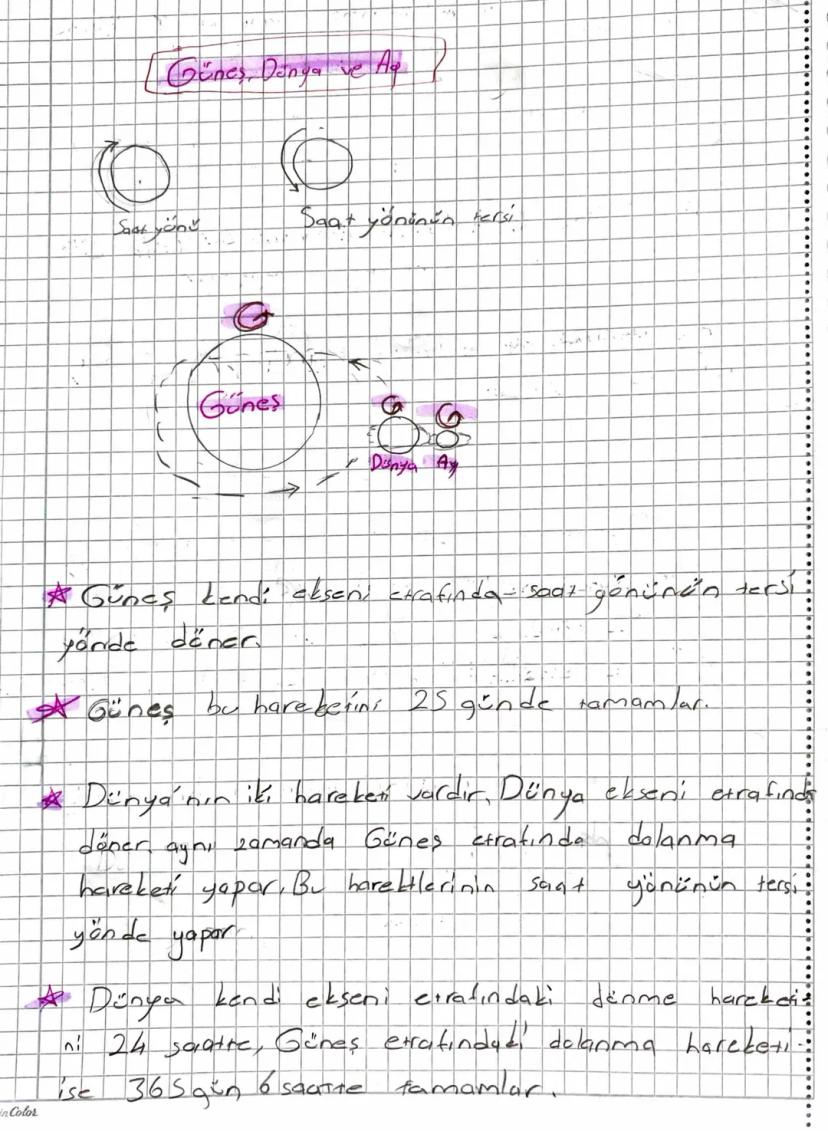 Güneş, Dünya ve Ay
Saat yönü
Saat yönünün tersi
Güneş
Dünya Ay
Güneş kendi ekseni etrafında saat yönünün tersi
yönde döner.
Güneş bu hareketini 25 günde tamamlar.
Dünya'nın iki hareketi vardır. Dünya ekseni etrafında
döner, aynı zamanda Güneş etrafında dolanma
hareketi yapar. Bu harektlerinin saat yönünün tersi
yönde yapar
Dünya kendi ekseni etrafındaki dönme hareketi-
ni 24 saatte, Güneş etrafındaki dolanma hareketi
ise 365 gün 6 saatte tamamlar.
inColor